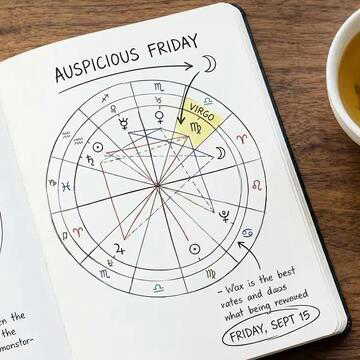 AUSPICIOUS FRIDAY
VIRGO
- Wax is the best
vates and daos
what being renowed
FRIDAY, SEPT 15
en the
the
monstor-